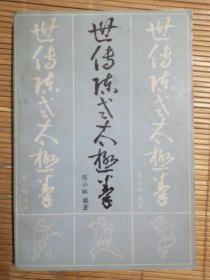 世传陈式太极拳
世传陈式太极拳
陈小旺 编著
世传陈式太极拳